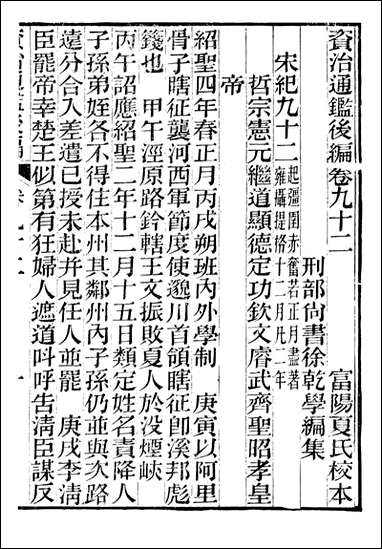 資治通鑑後編卷九十二
富陽夏氏校本
刑部尚書徐乾學編集
宋紀九十二起彊圉赤奮若正月盡著雍攝提格十二月凡二年
哲宗憲元繼道顯德定功欽文睿武齊聖昭孝皇
帝
紹聖四年春正月丙戌朔班內外學制 庚寅以阿里
骨子瞎征襲河西軍節度使邈川首領瞎征卽溪邦彪
籛也 甲午涇原路鈐轄王文振敗夏人於沒煙峽
丙午詔應紹聖二年十二月十五日類定姓名責降人
子孫弟姪各不得住本州其鄰州內子孫仍並與次路
遠分合入差遣已授未赴并見任人並罷 庚戌李淸
臣罷帝幸楚王似第有狂婦人遮道叫呼告淸臣謀反
卷九十二
一